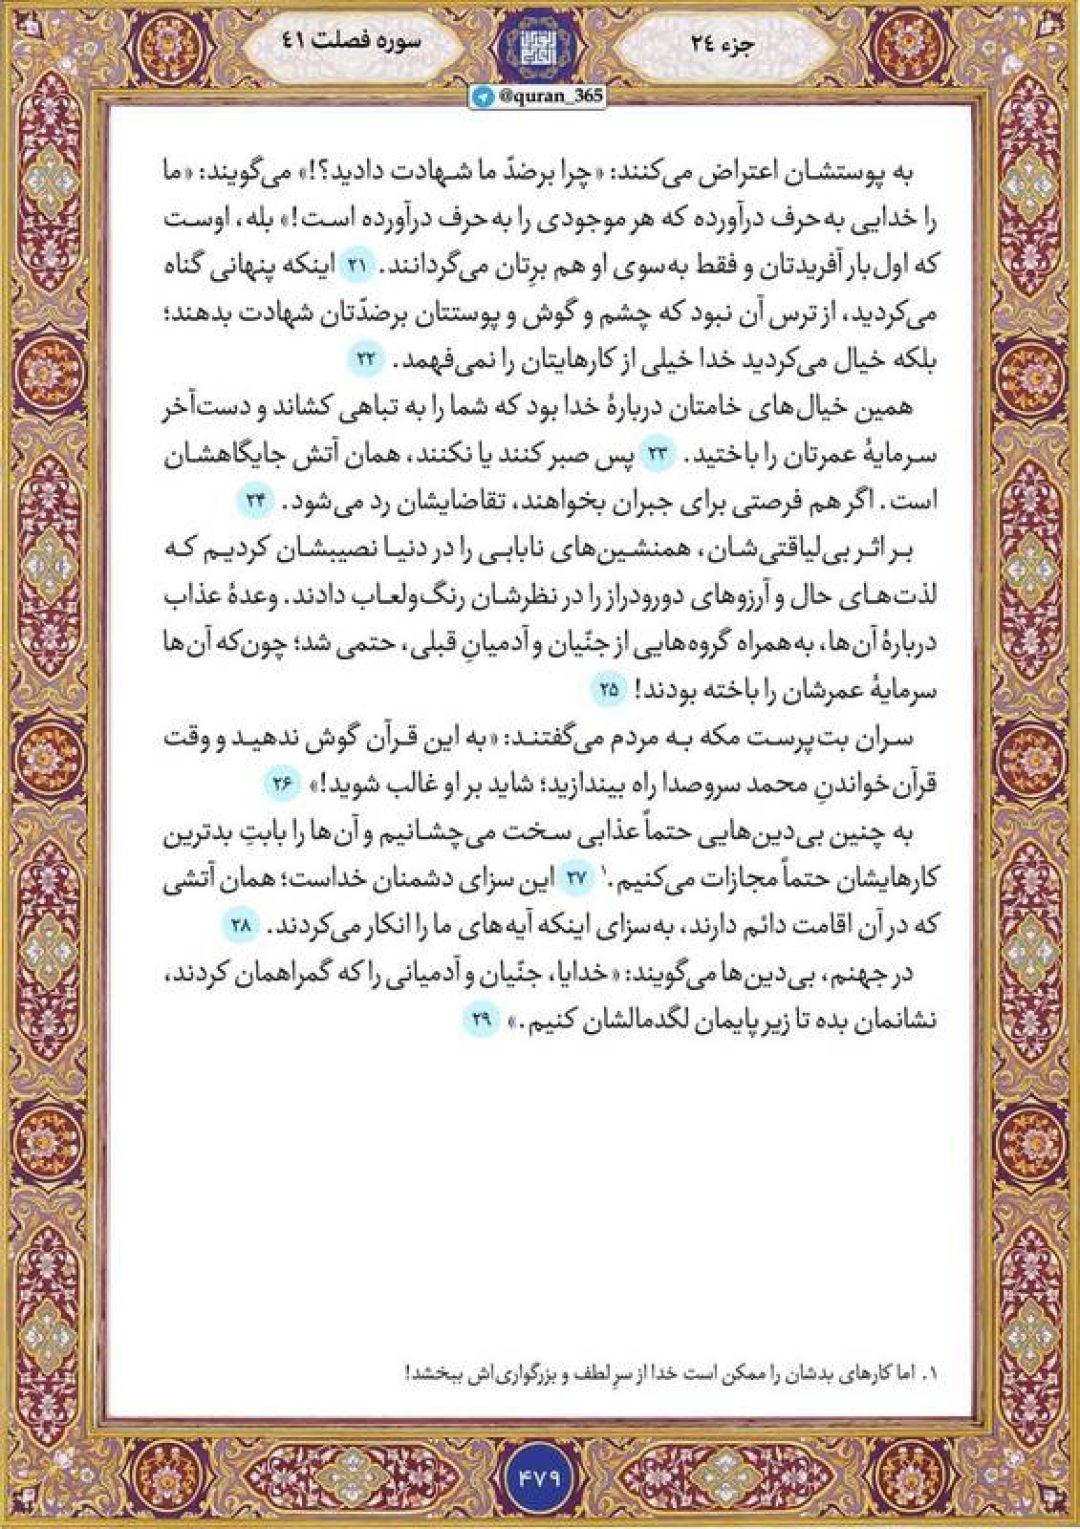 جزء ۲٤
سوره فصلت ٤١
@quran_365
به پوستشان اعتراض می‌کنند: «چرا برضدّ ما شهادت دادید؟!» می‌گویند: «ما
را خدایی به‌حرف درآورده که هر موجودی را به‌حرف درآورده است!» بله، اوست
که اول‌بار آفریدتان و فقط به‌سوی او هم برِتان می‌گردانند. ۲۱ اینکه پنهانی گناه
می‌کردید، از ترس آن نبود که چشم و گوش و پوستتان برضدّتان شهادت بدهند؛
بلکه خیال می‌کردید خدا خیلی از کارهایتان را نمی‌فهمد. ۲۲
همین خیال‌های خامتان دربارهٔ خدا بود که شما را به تباهی کشاند و دست‌آخر
سرمایهٔ عمرتان را باختید. ۲۳ پس صبر کنند یا نکنند، همان آتش جایگاهشان
است. اگر هم فرصتی برای جبران بخواهند، تقاضایشان رد می‌شود. ۲۴
بر اثر بی‌لیاقتی‌شان، همنشین‌های نابابی را در دنیا نصیبشان کردیم که
لذت‌های حال و آرزوهای دورودراز را در نظرشان رنگ‌ولعاب دادند. وعدهٔ عذاب
دربارهٔ آن‌ها، به‌همراه گروه‌هایی از جنّیان و آدمیانِ قبلی، حتمی شد؛ چون‌که آن‌ها
سرمایهٔ عمرشان را باخته بودند! ۲۵
سران بت‌پرست مکه به مردم می‌گفتند: «به این قرآن گوش ندهید و وقت
قرآن‌خواندنِ محمد سروصدا راه بیندازید؛ شاید بر او غالب شوید!» ۲۶
به چنین بی‌دین‌هایی حتماً عذابی سخت می‌چشانیم و آن‌ها را بابتِ بدترین
کارهایشان حتماً مجازات می‌کنیم.۱ ۲۷ این سزای دشمنان خداست؛ همان آتشی
که در آن اقامت دائم دارند، به‌سزای اینکه آیه‌های ما را انکار می‌کردند. ۲۸
در جهنم، بی‌دین‌ها می‌گویند: «خدایا، جنّیان و آدمیانی را که گمراهمان کردند،
نشانمان بده تا زیر پایمان لگدمالشان کنیم.» ۲۹
۱. اما کارهای بدشان را ممکن است خدا از سرِ لطف و بزرگواری‌اش ببخشد!
۴۷۹